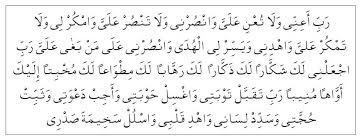 رَبِّ أَعِنِّي وَلَا تُعِنْ عَلَيَّ وَانْصُرْنِي وَلَا تَنْصُرْ عَلَيَّ وَامْكُرْ لِي وَلَا
تَمْكُرْ عَلَيَّ وَاهْدِنِي وَيَسِّرْ لِي الْهُدَى وَانْصُرْنِي عَلَى مَنْ بَغَى عَلَيَّ رَبِّ
اجْعَلْنِي لَكَ شَكَّارًا لَكَ ذَكَّارًا لَكَ رَهَّابًا لَكَ مِطْوَاعًا لَكَ مُخْبِتًا إِلَيْكَ
أَوَّاهًا مُنِيبًا رَبِّ تَقَبَّلْ تَوْبَتِي وَاغْسِلْ حَوْبَتِي وَأَجِبْ دَعْوَتِي وَثَبِّتْ
حُجَّتِي وَسَدِّدْ لِسَانِي وَاهْدِ قَلْبِي وَاسْلُلْ سَخِيمَةَ صَدْرِي